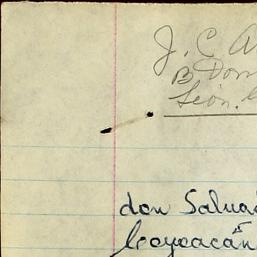 J. C. A
B Dom
León.
don Salva
Coyoacán